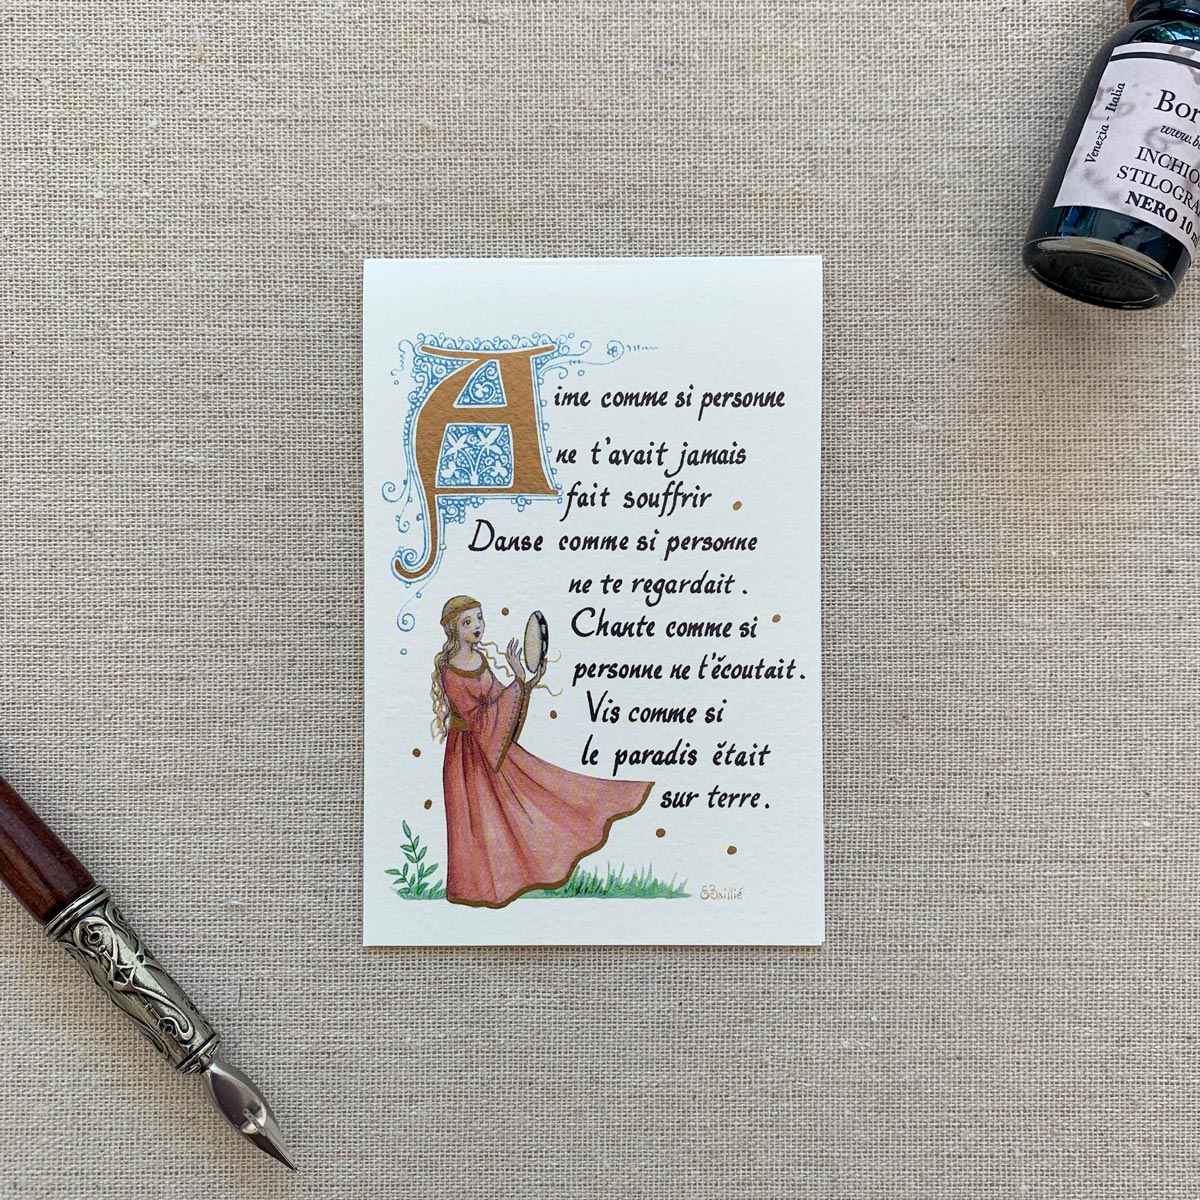 Aime comme si personne
ne t'avait jamais
fait souffrir
Danse comme si personne
ne te regardait.
Chante comme si
personne ne t'écoutait.
Vis comme si
le paradis était
sur terre.
Baillié
Venezia - Italia
NERO 10